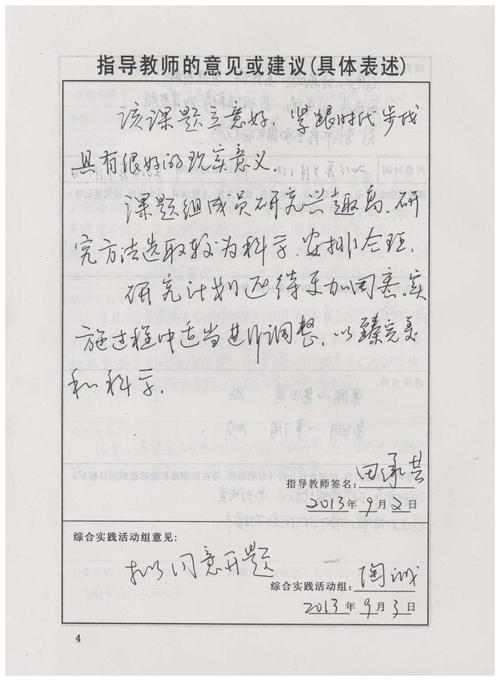 指导教师的意见或建议(具体表述)
该课题立意好，紧跟时代步伐
具有很好的现实意义.
课题组成员研究兴趣高，研
究方法选取较为科学，安排合理.
研究计划还待更加周密，实
施过程中适当进行调整，以臻完美
和科学.
指导教师签名：田承芸
2013年 9月 2日
综合实践活动组意见：
拟同意开题
综合实践活动组：陶诚
2013年 9月 3日
4